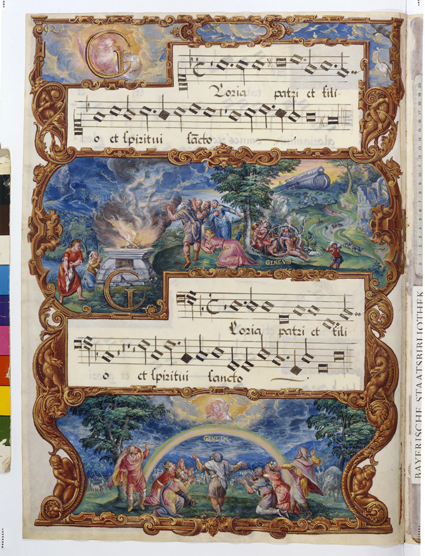 Gloria patri et fili-
o et spiritui sancto
GENE. VIII
Gloria patri et fili
o et spiritui sancto
GENE. IX.
BAYERISCHE STAATSBIBLIOTHEK